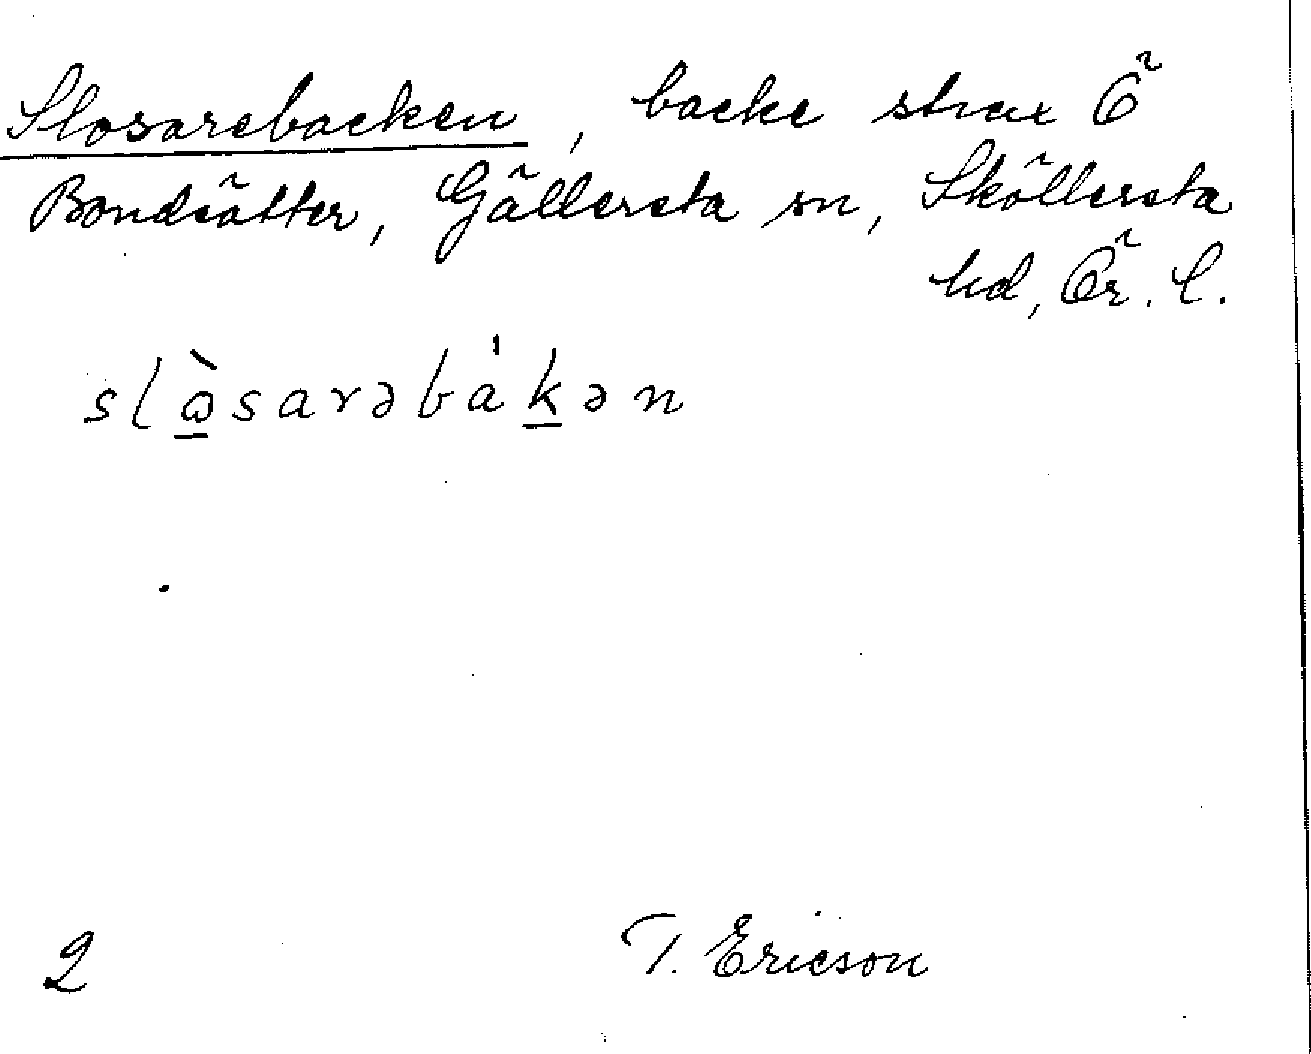 Slosarebacken, backe strax Ö
Bondsätter, Gällersta sn, Sköllersta
hd, Ör. l.
slòsarəbákən
2 T. Ericson